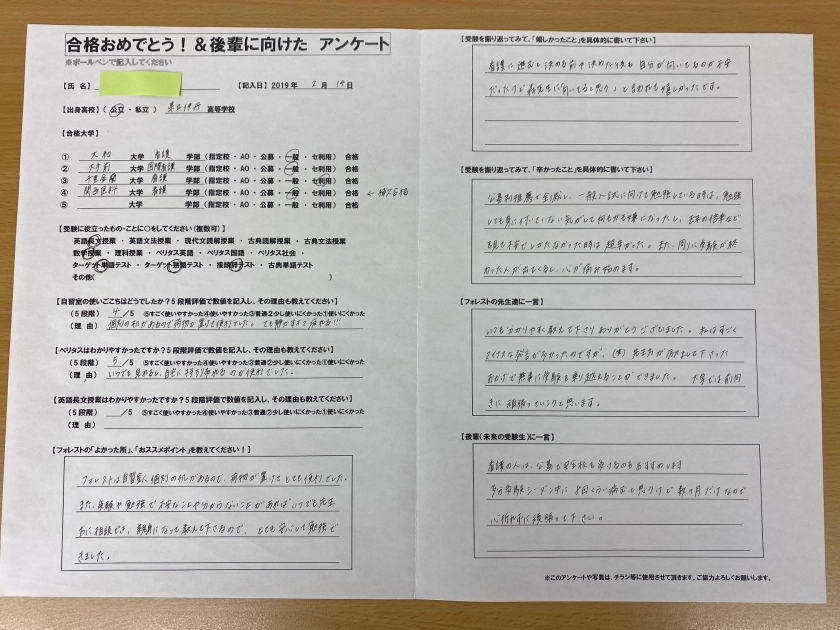 合格おめでとう！＆後輩に向けた アンケート
※ボールペンで記入してください
【氏 名】
【記入日】2019年 2月 14日
【出身高校】（公立・私立） 県立伊丹 高等学校
【合格大学】
① 大和 大学 看護 学部（指定校・AO・公募・一般・セ利用）合格
② 大手前 大学 国際看護 学部（指定校・AO・公募・一般・セ利用）合格
③ 千里金蘭 大学 看護 学部（指定校・AO・公募・一般・セ利用）合格
④ 関西医科 大学 看護 学部（指定校・AO・公募・一般・セ利用）合格 ← 補欠合格
⑤ 大学 学部（指定校・AO・公募・一般・セ利用）合格
【受験に役立ったもの・ことに○をしてください（複数可）】
英語長文授業 ・ 英語文法授業 ・ 現代文読解授業 ・ 古典読解授業 ・ 古典文法授業
数学授業 ・ 理科授業 ・ ベリタス英語 ・ ベリタス国語 ・ ベリタス社会 ・
ターゲット単語テスト ・ ターゲット熟語テスト ・ 接頭辞テスト ・ 古典単語テスト
その他（ ）
【自習室の使いごこちはどうでしたか？5段階評価で数値を記入し、その理由も教えてください】
（5段階） 4／5 ⑤すごく使いやすかった④使いやすかった③普通②少し使いにくかった①使いにくかった
（理 由） 個別の机があるので荷物が置けて便利でした。でも静かすぎて疲れる!!!
【ベリタスはわかりやすかったですか？5段階評価で数値を記入し、その理由も教えてください】
（5段階） 5／5 ⑤すごく使いやすかった④使いやすかった③普通②少し使いにくかった①使いにくかった
（理 由） いつでも見れるし、自宅に持ち帰れるのが便利でした。
【英語長文授業はわかりやすかったですか？5段階評価で数値を記入し、その理由も教えてください】
（5段階） ／5 ⑤すごく使いやすかった④使いやすかった③普通②少し使いにくかった①使いにくかった
（理 由）
【フォレストの「よかった所」、「おススメポイント」を教えてください！】
フォレストは自習室に個別の机があるので、荷物が置けてとても便利でした。
また、受験や勉強で不安なことや分からないことがあればいつでも先生
方に相談でき、親身になって教えて下さるので、とても安心して勉強で
きました。
【受験を振り返ってみて、「嬉しかったこと」を具体的に書いて下さい】
看護に進むと決める前や決めた後も自分が向いてるのか不安
だったけど森先生に「向いてると思う」と言われて嬉しかったです。
【受験を振り返ってみて、「辛かったこと」を具体的に書いて下さい】
公募制推薦で全滅し、一般入試に向けて勉強している時は、勉強
しても身に付いていない気がして何もかも嫌になったし、去年の倍率など
を見て不安でしかたなかった時は超辛かった。また、周りに受験が終
わった人が出てくると、心が病み始めます。
【フォレストの先生達に一言】
いつも分かりやすく教えて下さりありがとうございました。私はすごく
マイナスな発言が多かったのですが、 先生方が励まして下さった
おかげで無事に受験を乗り越えることができました。 大学では前向
きに頑張っていこうと思います。
【後輩（未来の受験生）に一言】
看護の人は、公募で安全校を受けるのをおすすめします
多分受験シーズン中に 回くらい病むと思うけど数ヶ月だけなので
心折れずに頑張って下さい。
※このアンケートや写真は、チラシ等に使用させて頂きます。ご協力よろしくお願いします。